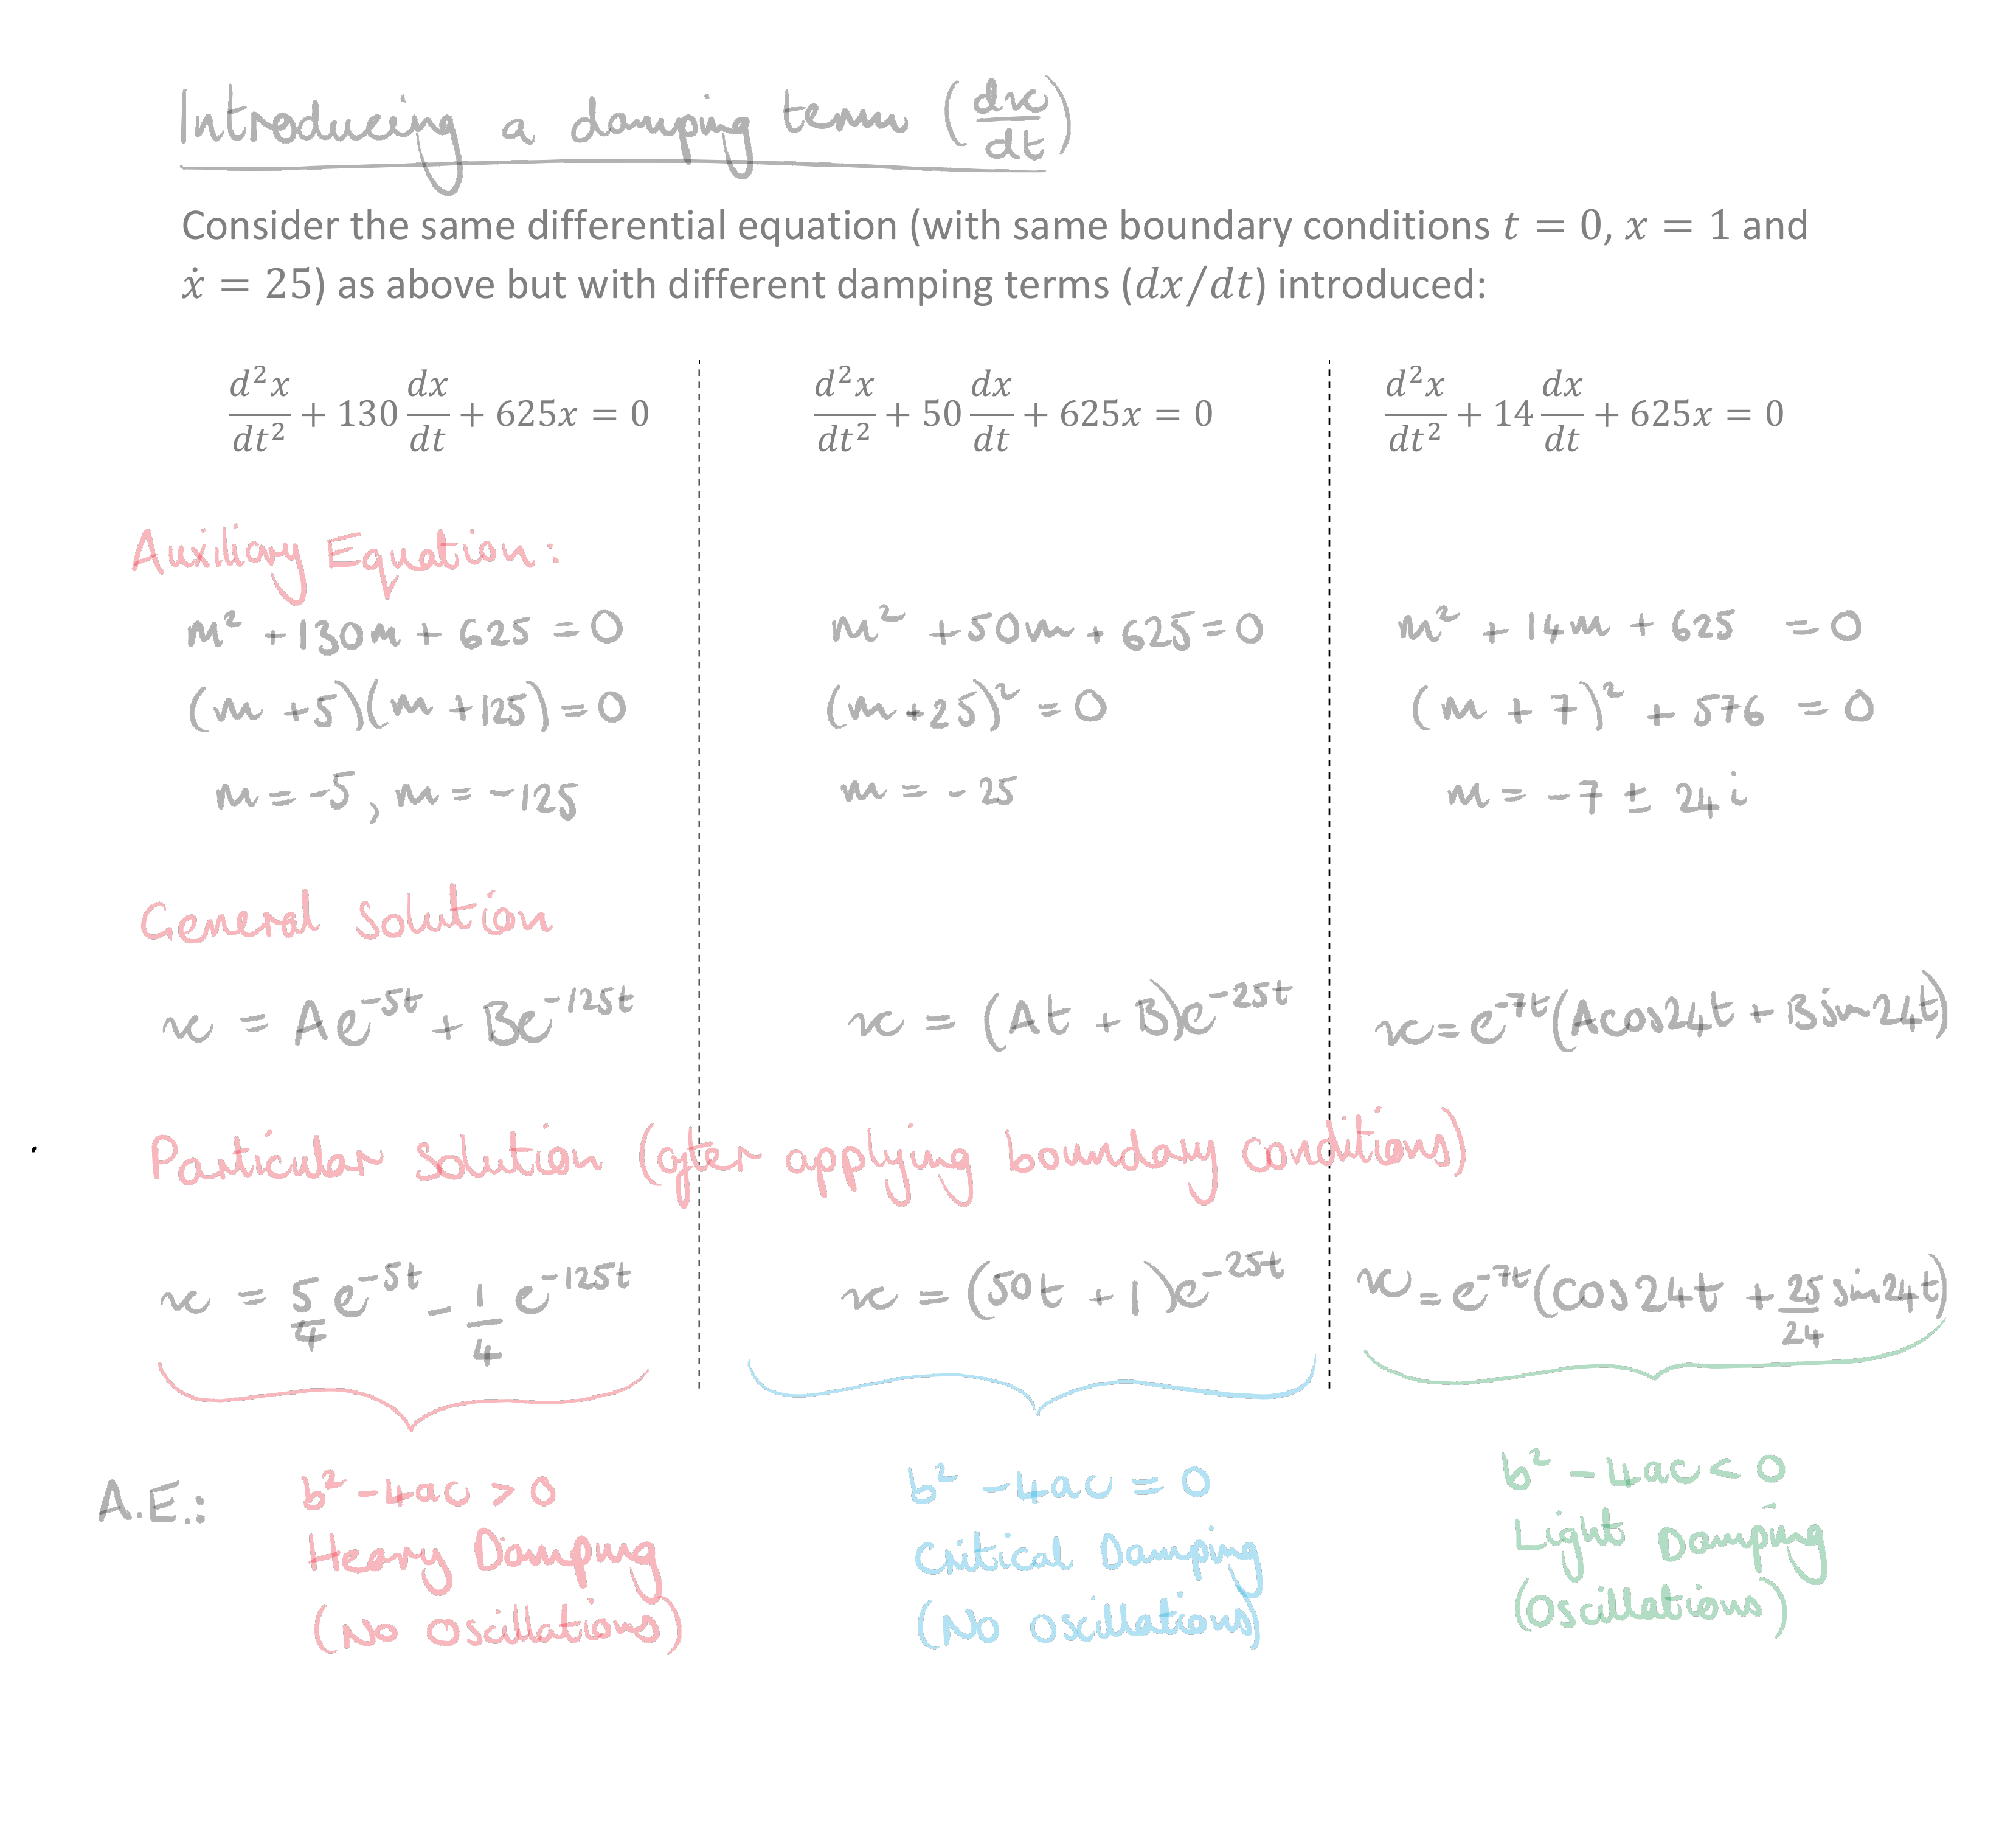 Introducing a damping term (dx/dt)
Consider the same differential equation (with same boundary conditions t = 0, x = 1 and
ẋ = 25) as above but with different damping terms (dx/dt) introduced:
d²x/dt² + 130 dx/dt + 625x = 0
d²x/dt² + 50 dx/dt + 625x = 0
d²x/dt² + 14 dx/dt + 625x = 0
Auxiliary Equation:
m² + 130m + 625 = 0
m² + 50m + 625 = 0
m² + 14m + 625 = 0
(m + 5)(m + 125) = 0
(m + 25)² = 0
(m + 7)² + 576 = 0
m = -5, m = -125
m = -25
m = -7 ± 24i
General Solution
x = Ae^(-5t) + Be^(-125t)
x = (At + B)e^(-25t)
x = e^(-7t)(Acos24t + Bsin24t)
Particular Solution (after applying boundary conditions)
x = 5/4 e^(-5t) - 1/4 e^(-125t)
x = (50t + 1)e^(-25t)
x = e^(-7t)(cos24t + 25/24 sin24t)
A.E.:
b² - 4ac > 0
b² - 4ac = 0
b² - 4ac < 0
Heavy Damping
Critical Damping
Light Damping
(No Oscillations)
(No oscillations)
(Oscillations)